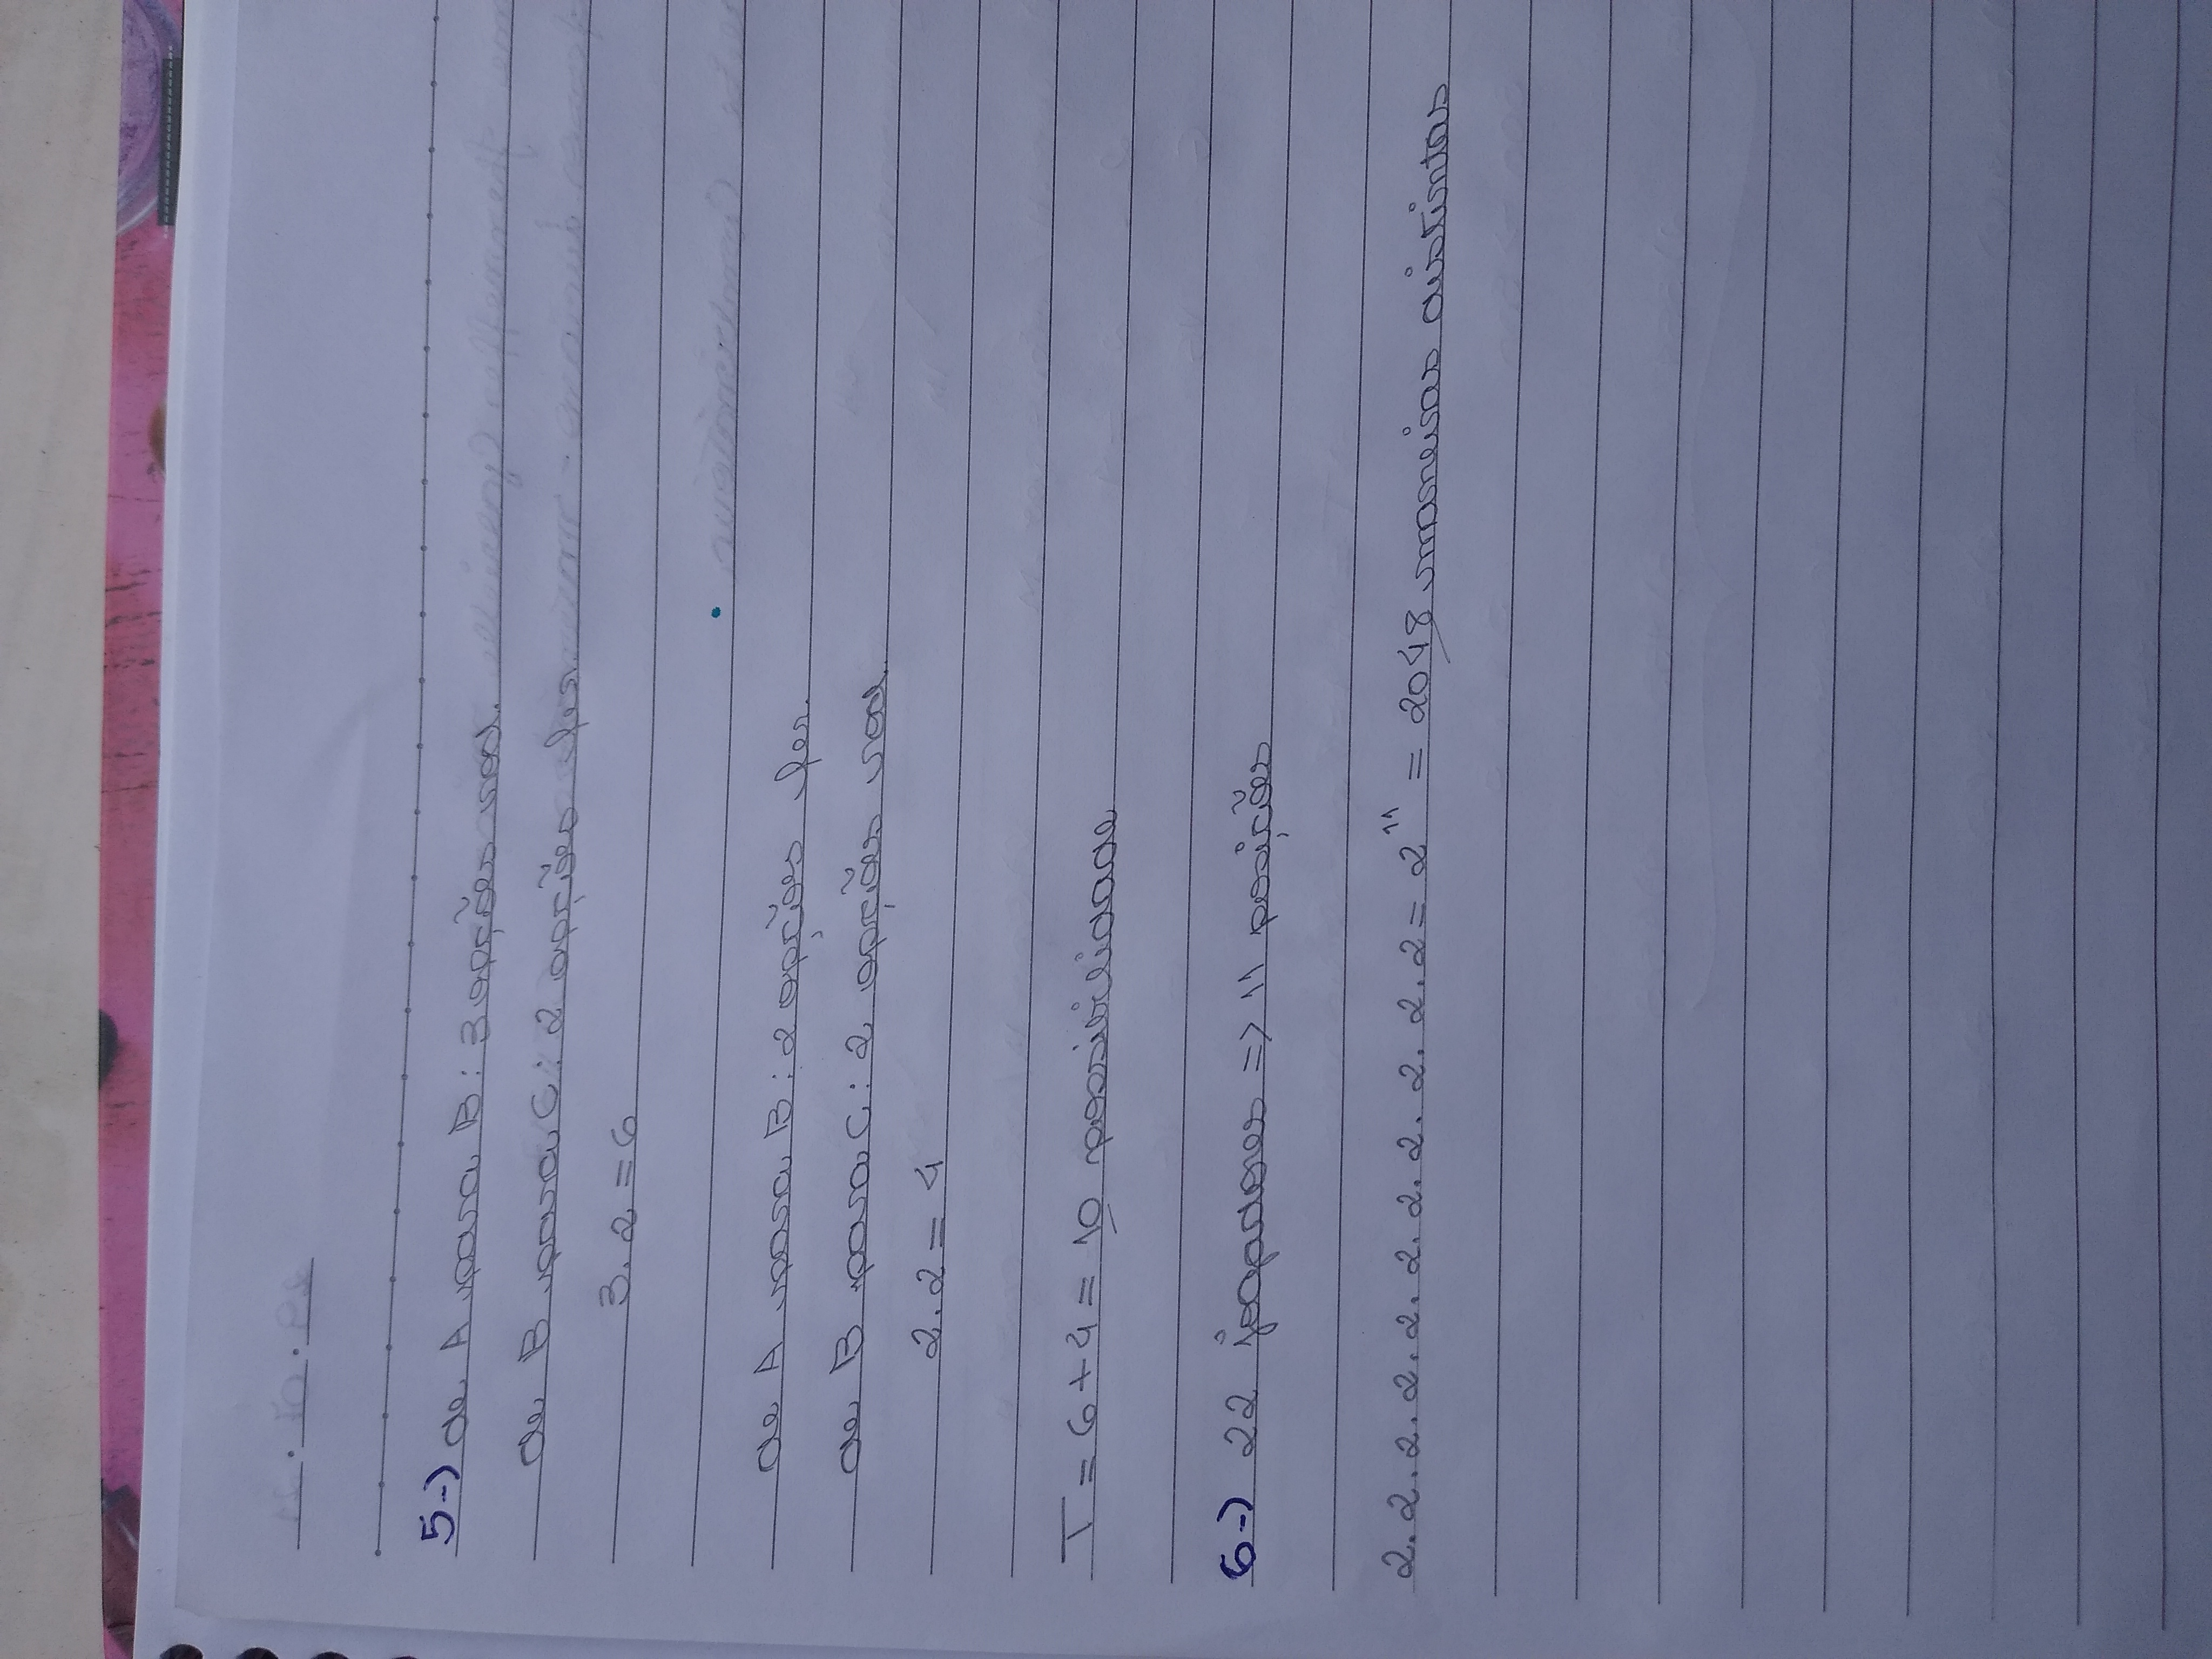 5-) de A para B: 3 opções rod.
de B para C: 2 opções fer.
3.2=6
de A para B: 2 opções fer.
de B para C: 2 opções rod.
2.2=4
T=6+4=10 possibilidade
6-) 22 jogadores => 11 posições
2.2.2.2.2.2.2.2.2.2.2=2¹¹=2048 maneiras distintas